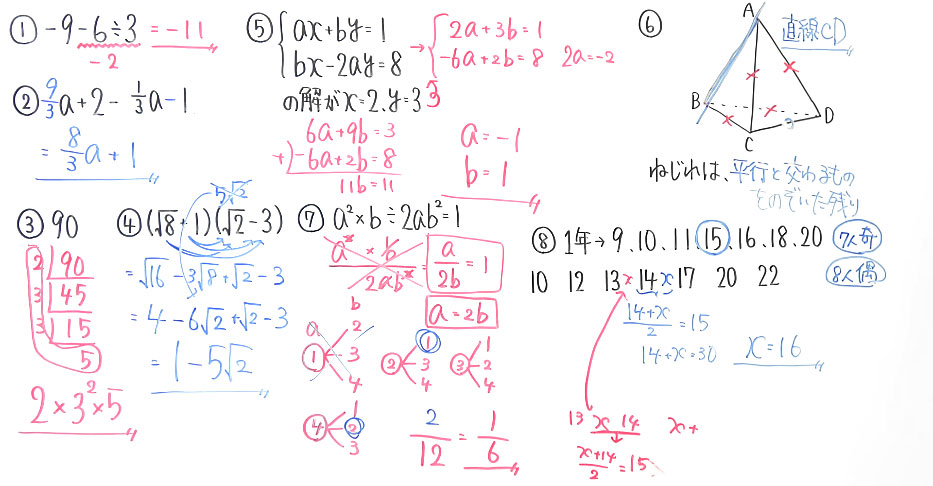 ① -9-6÷3 = -11
-2
② 9/3 a+2- 1/3 a-1
= 8/3 a+1
③ 90
2 | 90
3 | 45
3 | 15
5
2×3²×5
④ (√8+1)(√2-3)
5√2
=√16-3√8+√2-3
=4-6√2+√2-3
=1-5√2
⑤ { ax+by=1
bx-2ay=8
の解がx=2、y=3 3
→ { 2a+3b=1
-6a+2b=8 2a=-2
6a+9b=3
+)-6a+2b=8
11b=11
a=-1
b=1
⑥ 直線CD
A
B
C
D
3
ねじれは、平行と交わるもの
をのぞいた残り
⑦ a²×b÷2ab²=1
a²×b/2ab² = a/2b = 1
b
a=2b
a
① 2 3 4
② 1 3 4
③ 1 2 4
④ 1 2 3
2/12 = 1/6
⑧ 1年→9、10、11 15、16、18、20 7人奇
10 12 13 x 14 x 17 20 22 8人偶
14+x/2 =15
14+x=30 x=16
13 x 14 x+
x+14/2 =15